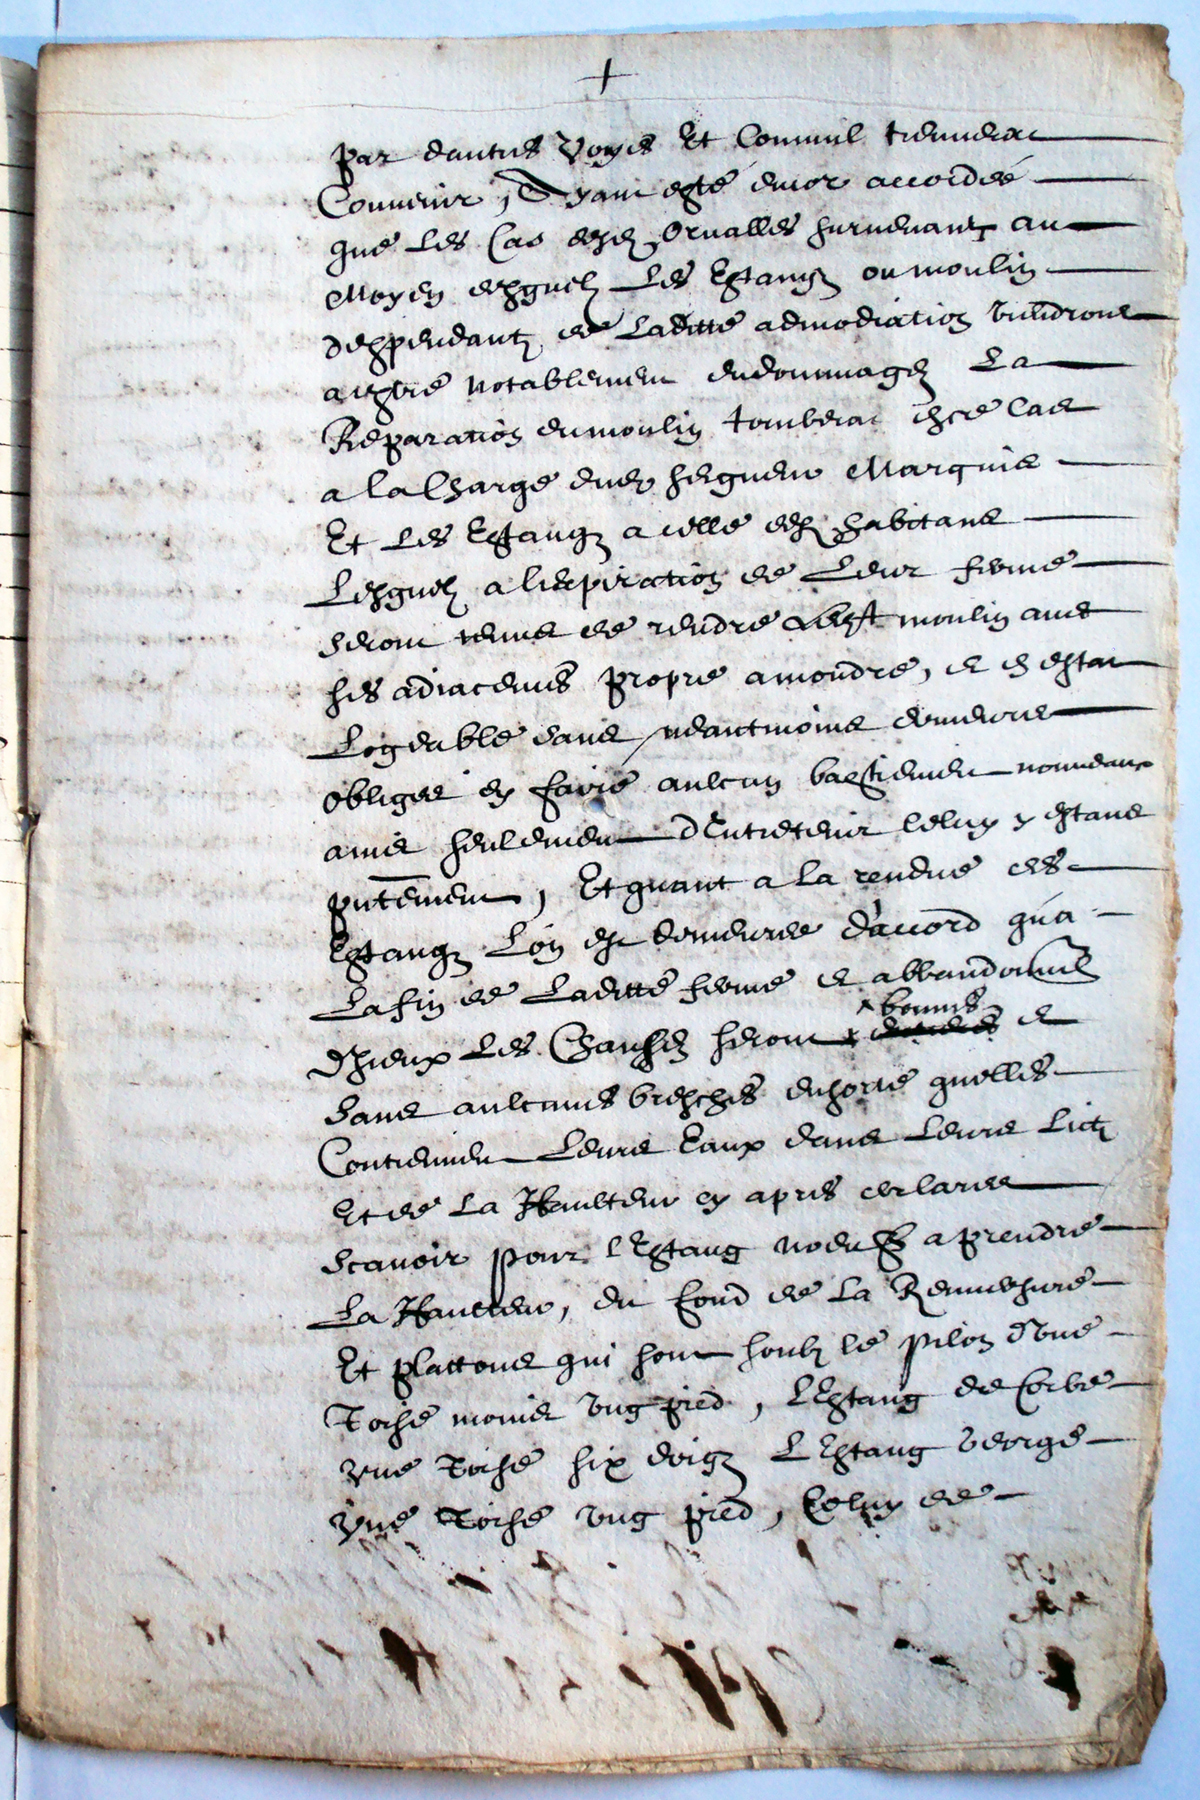 +
par dautres voyes Et Comme tiendrat
Convenir, Ayant esté encor accordéé
que Les Cas desd Orvalles survenant au
Moyen desquelz Les Estangz ou moulin
despendantz de Laditte admodiation viendront
a estre notablement endommagéz La
Reparation du moulin tomberat en ce Cas
a la Charge dud seigneur Marquis
Et Les Estangz a celle desd habitans
Lesquelz a lexpiration de Leur ferme
seront tenus de rendre Ledt moulin avec
ses adiacences propre a moudre, et en estat
Logeable sans neantmoins demeurer
obligés en faire aulcun bastiement nouveaux
ains seulement d'Entretenir Celuy y estans
pntement, Et quant a la rendue des
Estangz Lon est demeurée d'accord qu'a
La fin de Laditte ferme et abbandonné
d'Jceux Les Chausséz seront bonnes et
sans aulcunes bresches ensorte quelles
Contiennent Leurs Eaux dans Leurs Lictz
Et de La Haulteur cy apres declarée
Scavoir pour l'Estang a prendre
La Haulteur, du fond de la
Et plattone qui sont soubz le pilon d'vne
Toise moins vng pied, L'Estang de Corbe
vne Toise six doigz L'Estang vierge
vne Toise vng pied, Celuy de